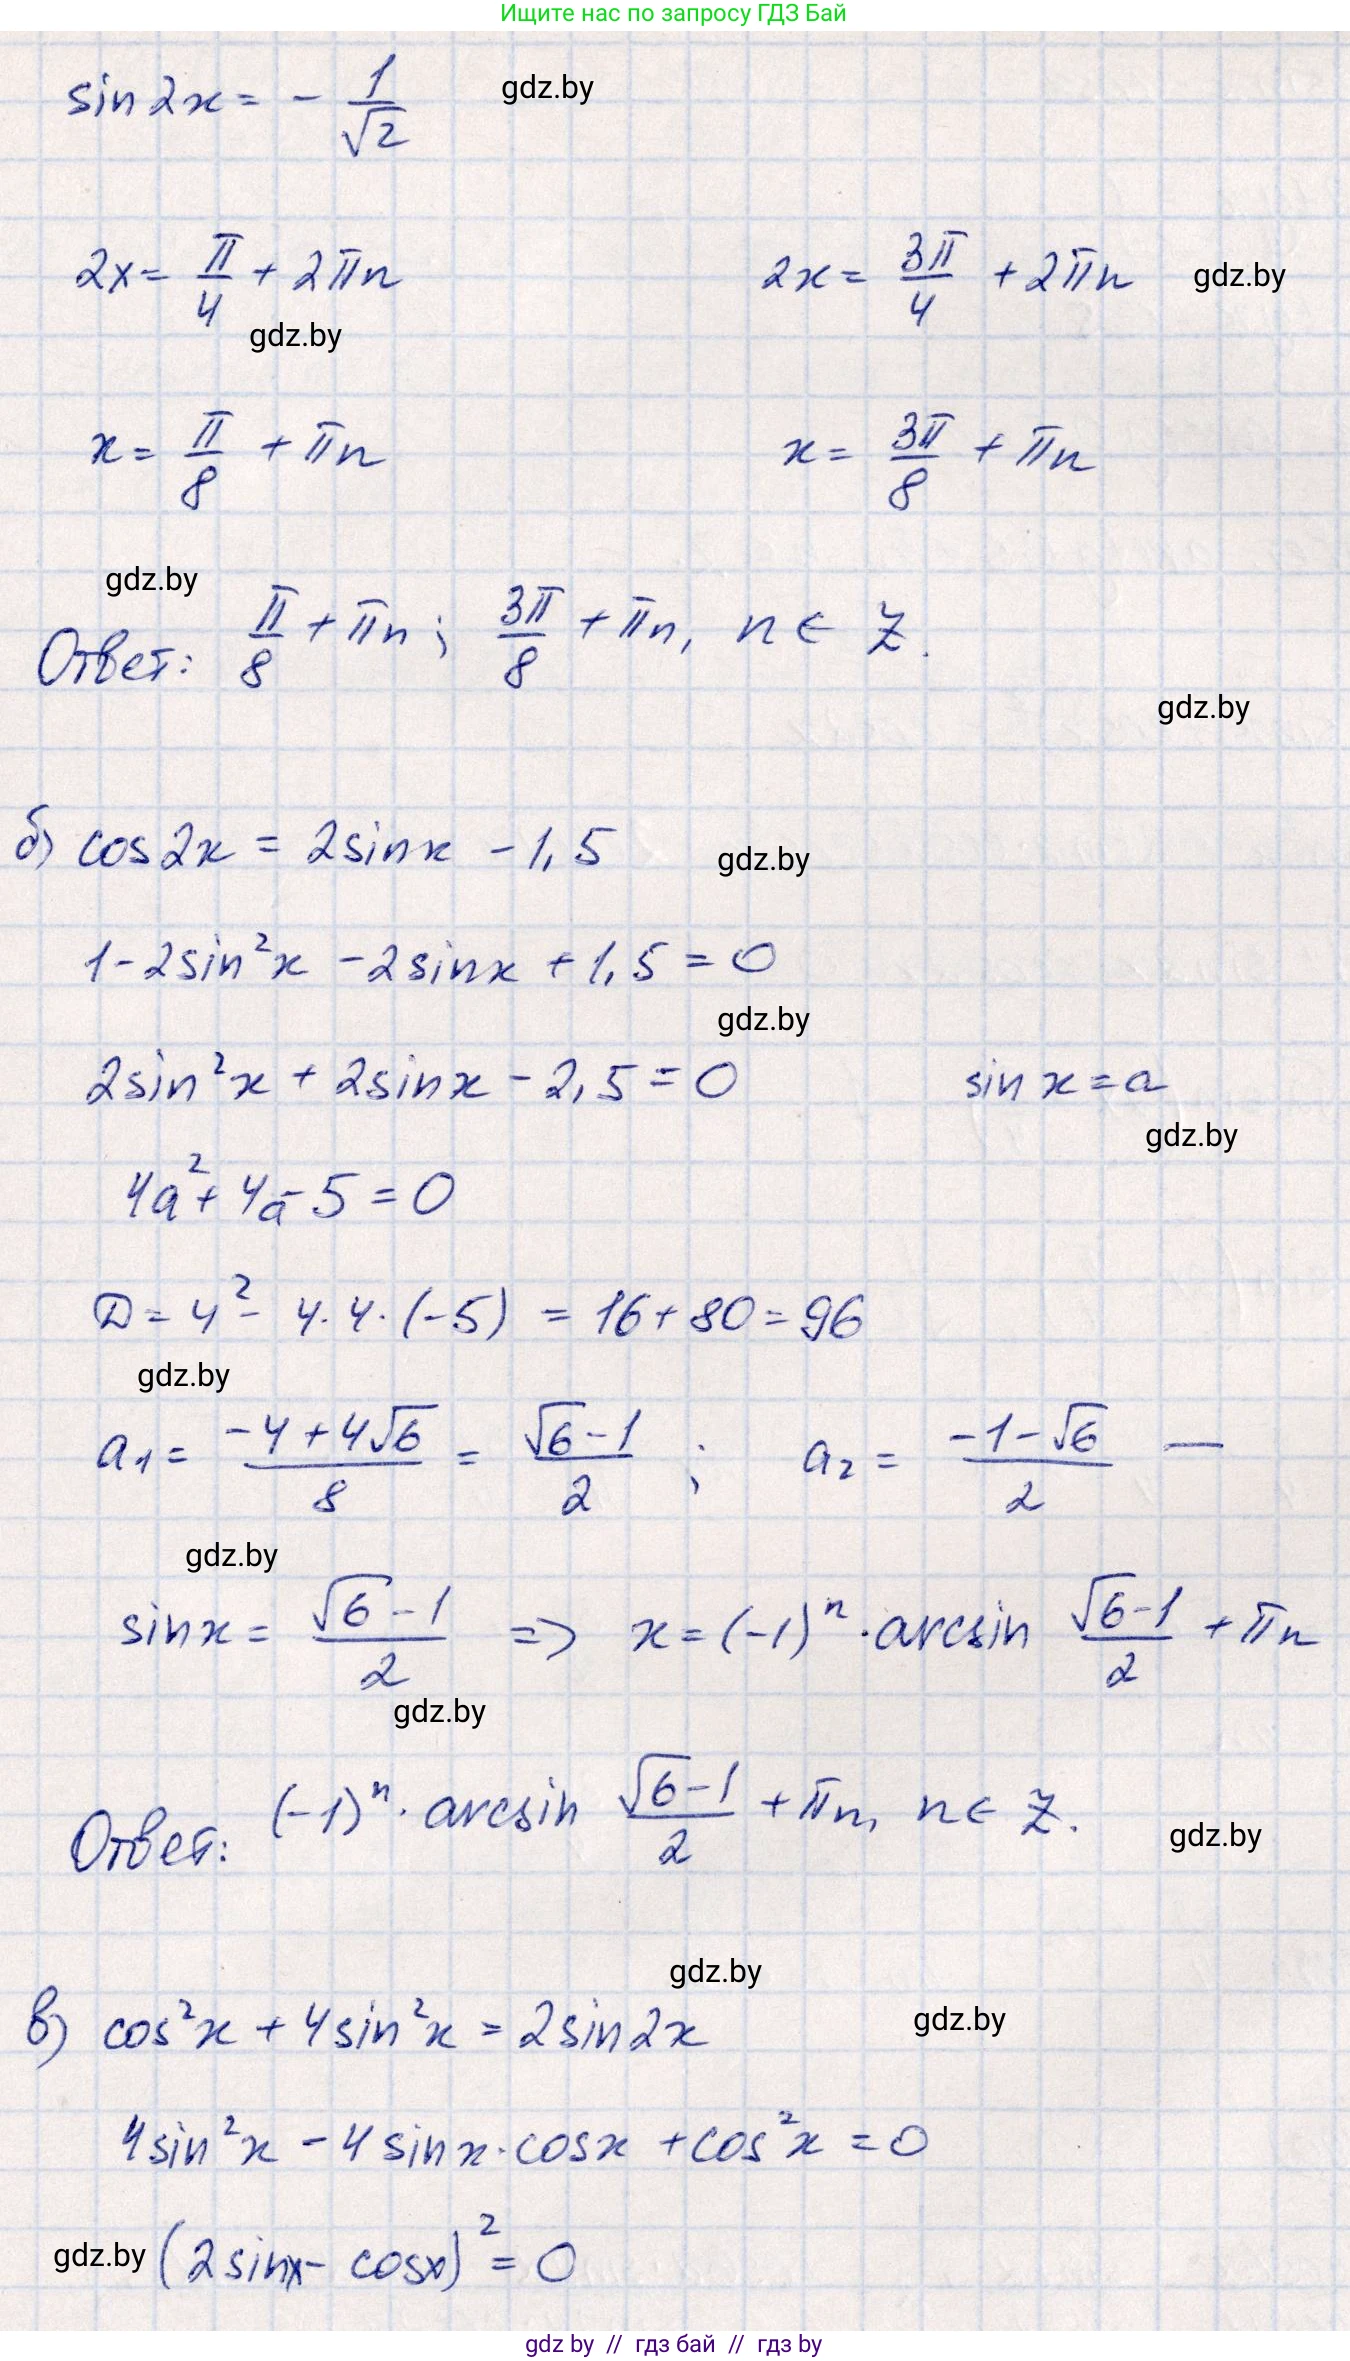 Ищите нас по запросу ГДЗ Бай
sin2x = - 1/√2 gdz.by
2x = π/4 + 2πn 2x = 3π/4 + 2πn gdz.by
gdz.by
x = π/8 + πn x = 3π/8 + πn
gdz.by
Ответ: π/8 + πn; 3π/8 + πn, n ∈ Z.
gdz.by
б) cos2x = 2sinx - 1,5 gdz.by
1 - 2sin²x - 2sinx + 1,5 = 0
gdz.by
2sin²x + 2sinx - 2,5 = 0 sin x = a
gdz.by
4a² + 4a - 5 = 0
D = 4² - 4·4·(-5) = 16 + 80 = 96
gdz.by
a₁ = (-4 + 4√6)/8 = (√6 - 1)/2 ; a₂ = (-1 - √6)/2 —
gdz.by
sinx = (√6 - 1)/2 => x = (-1)ⁿ · arcsin (√6 - 1)/2 + πn
gdz.by
Ответ: (-1)ⁿ · arcsin (√6 - 1)/2 + πn, n ∈ Z.
gdz.by
gdz.by
в) cos²x + 4sin²x = 2sin2x gdz.by
4sin²x - 4sinx·cosx + cos²x = 0
gdz.by (2sinx - cosx)² = 0
gdz by // гдз бай // гдз by